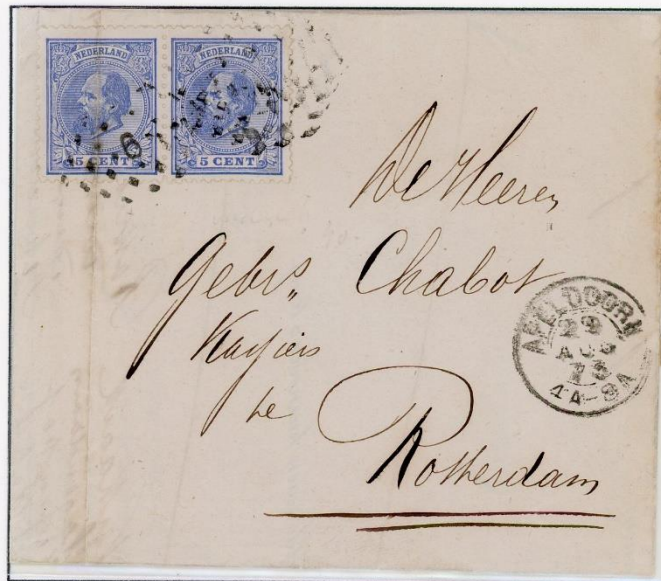 NEDERLAND NEDERLAND
5 CENT 5 CENT
6
De Heeren
Gebrs Chabot
Kassiers
te
Rotterdam
APELDOORN
29
AUG
73
4A-8A